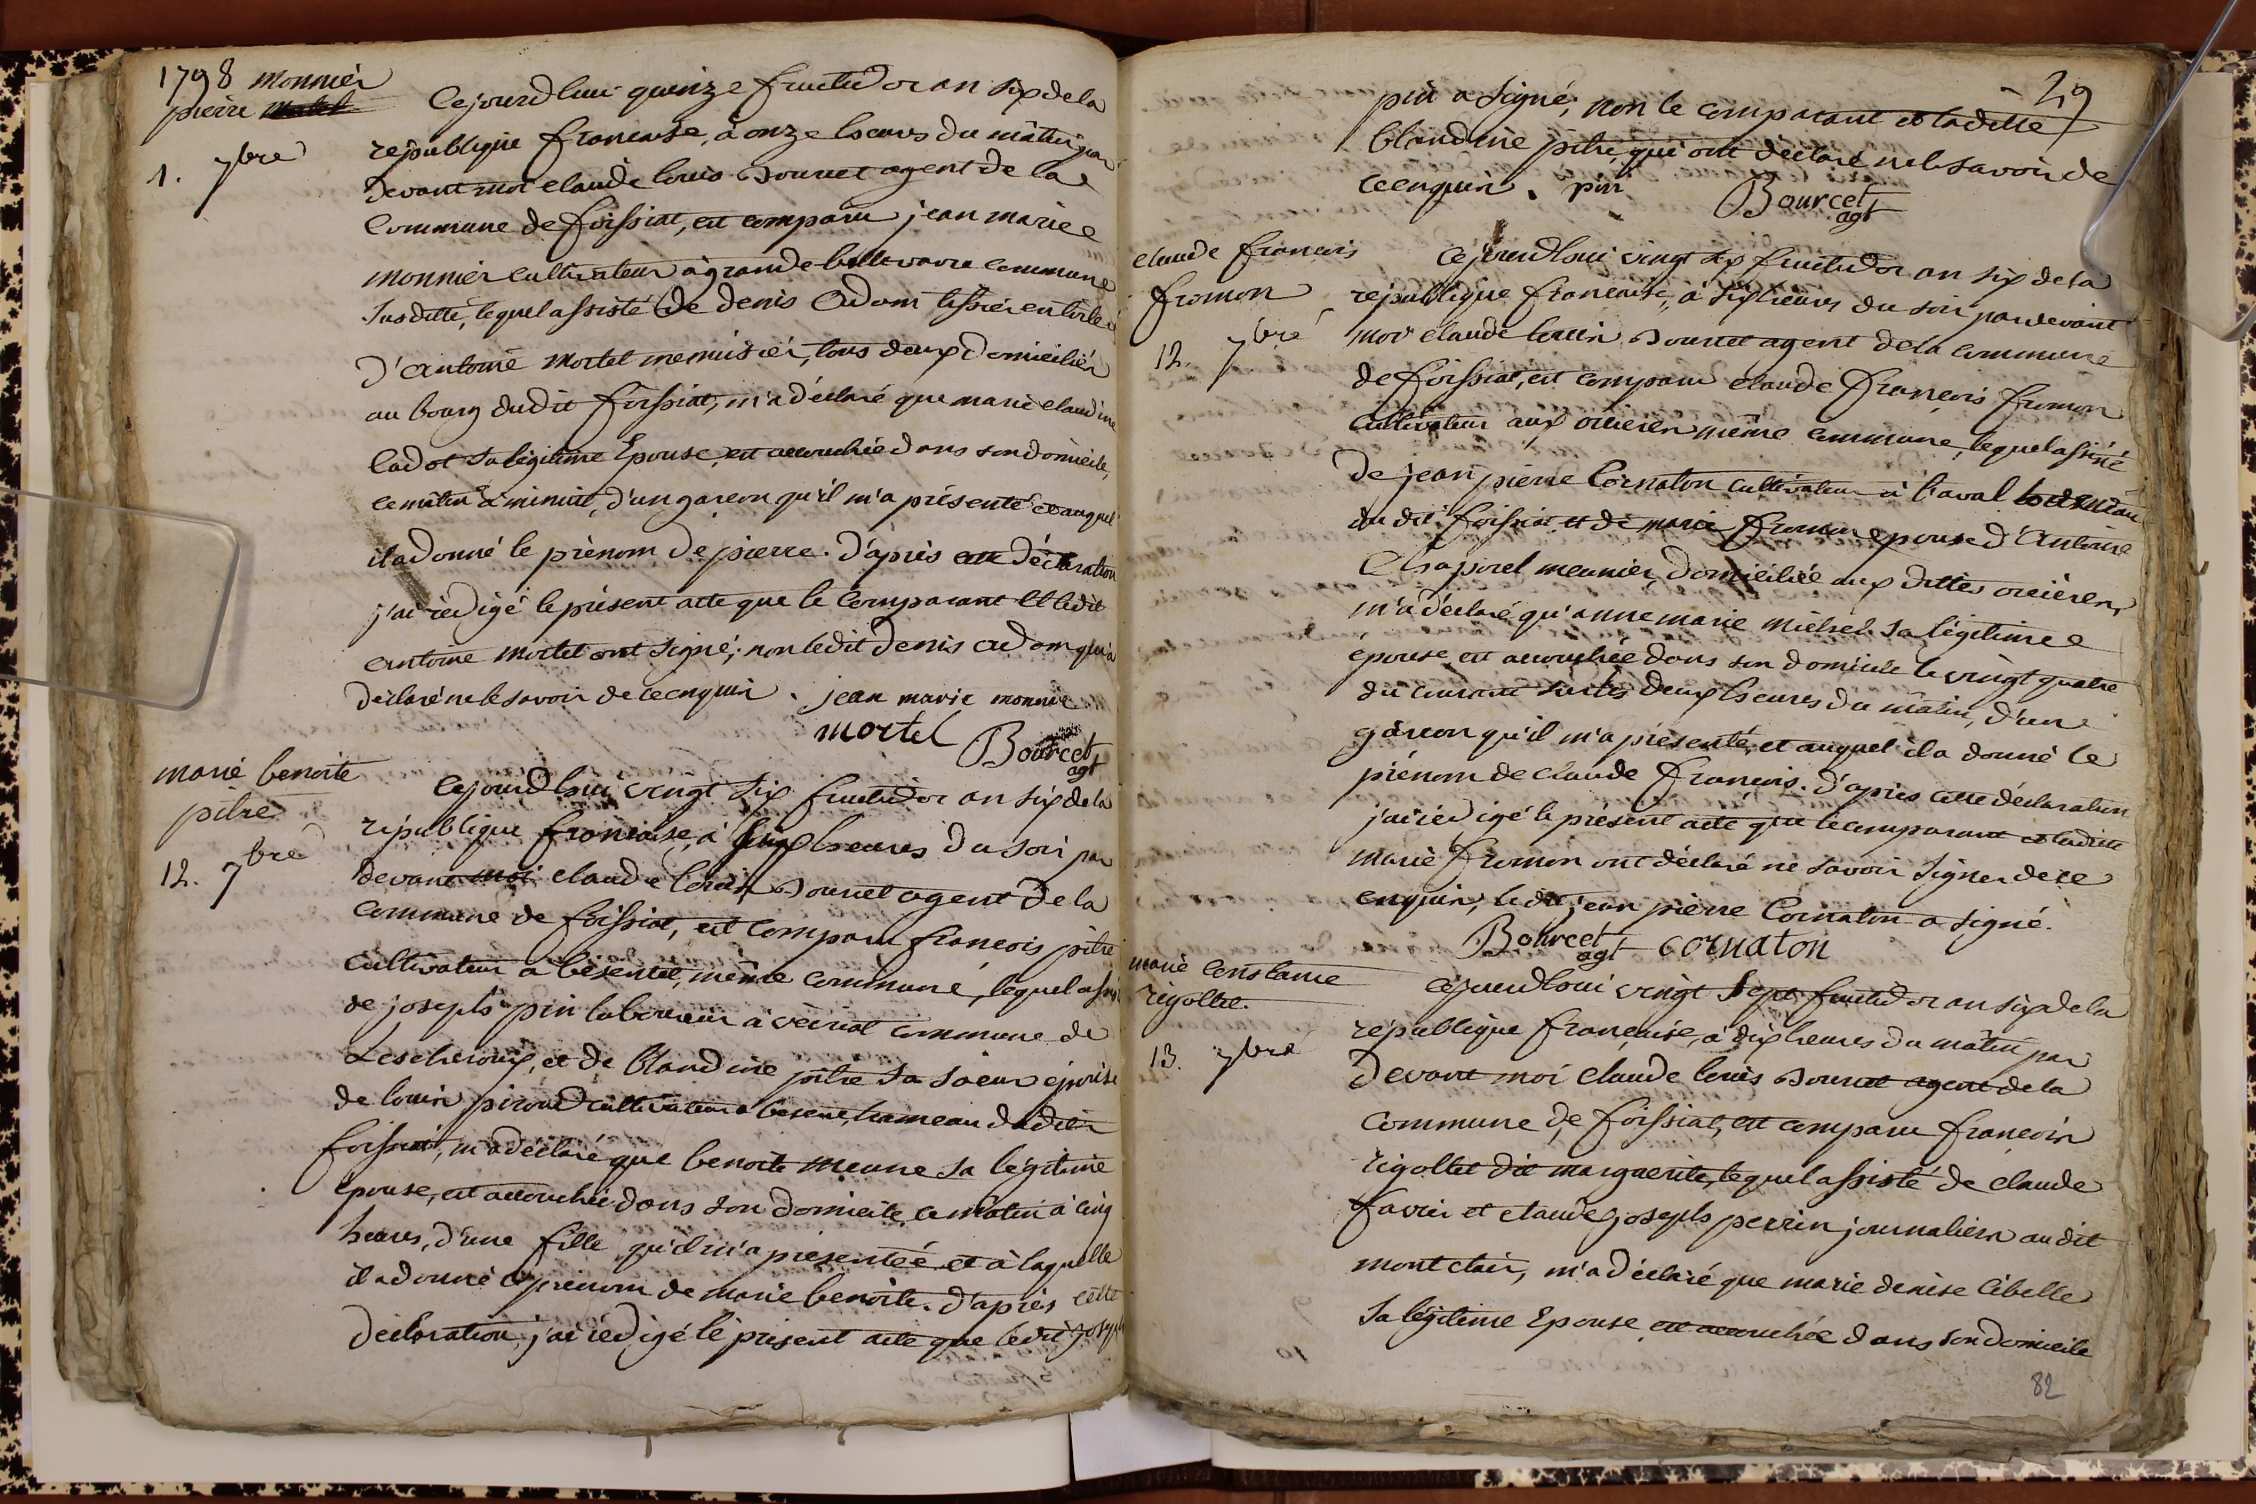 1798 monnier
pierre
1. 7bre
Cejourdhui quinze fructidor an six de la
republique francaise, a onze heures du matin par
devant moi claude louis Bourcet agent de la
Commune de foissiat, est comparu jean marie
monnier cultivateur a grande commune
Susditte, lequel assisté de denis Adam tissier en toile
d'Antoine mortel menuisier, tous deux domiciliés
au bourg dudit foissiat, m'a déclaré que marie claudine
cadot sa légitime Epouse, est accouchée dans son domicile,
ce matin a minuit, d'un garcon qu'il m'a présenté et auquel
il a donné le prénom de pierre. d'après cette déclaration
j'ai rédigé le présent acte que le comparant et ledit
antoine mortel ont signé; non ledit denis adam qui a
déclaré ne le savoir de ce enquis. jean marie monnie
mortel Bourcet
agt
marie benoite
pitre
12. 7bre
Cejourdhui vingt six fructidor an six de la
république francaise, a heures du soir par
devant moi claude louis Bourcet agent de la
commune de foissiat, est comparu françois pitre
cultivateur a besentet, même commune, lequel assis
de joseph pin laboureur à commune de
Lescheroux, et de blandine pitre sa soeur épouse
de louis piroud cultivateur a hameau dudit
foissiat, m'a déclaré que benoite meune sa légitime
épouse, est accouchée dans son domicile ce matin à cinq
heures, d'une fille qu'il m'a présentée et à laquelle
il a donné le prénom de marie benoite. d'après cette
déclaration, j'ai rédigé le présent acte que ledit joseph
29
pin a signé; non le comparant et laditte
blandine pitre, qui ont déclaré ne le savoir de
ce enquis. pin Bourcet
agt
claude francois
fromon
12. 7bre
Cejourdhui vingt six fructidor an six de la
république francaise, à six heures du soir pardevant
moi claude louis Bourcet agent de la commune
de foissiat, est comparu claude françois fromon
cultivateur aux orcieres même commune, lequel assisté
de jean pierre Cornaton cultivateur à laval hameau
du dit foissiat et de marie fromon epouse d'Antoine
Chaporel meunier, domiciliée aux dittes orcieres,
m'a déclaré qu'anne marie michel sa légitime
épouse est accouchée dans son domicile le vingt quatre
du courant sur les deux heures du matin, d'un
garcon qu'il m'a présenté, et auquel il a donné le
prénom de claude francois. d'après cette déclaration
j'ai rédigé le présent acte que le comparant et laditte
marie fromon ont déclaré ne savoir signer de ce
enquis, ledit jean pierre Cornaton a signé.
Bourcet
agt cornaton
marie constance
rigollet.
13. 7bre
Cejourdhui vingt sept fructidor an six de la
république francaise, à dix heures du matin par
devant moi claude louis Bourcet agent de la
commune de foissiat, est comparu francois
rigollet dit marguerite, lequel assisté de claude
favier et claude joseph perrin journaliers au dit
montclair, m'a déclaré que marie denise libelle
sa légitime Epouse est accouchée dans son domicile
82